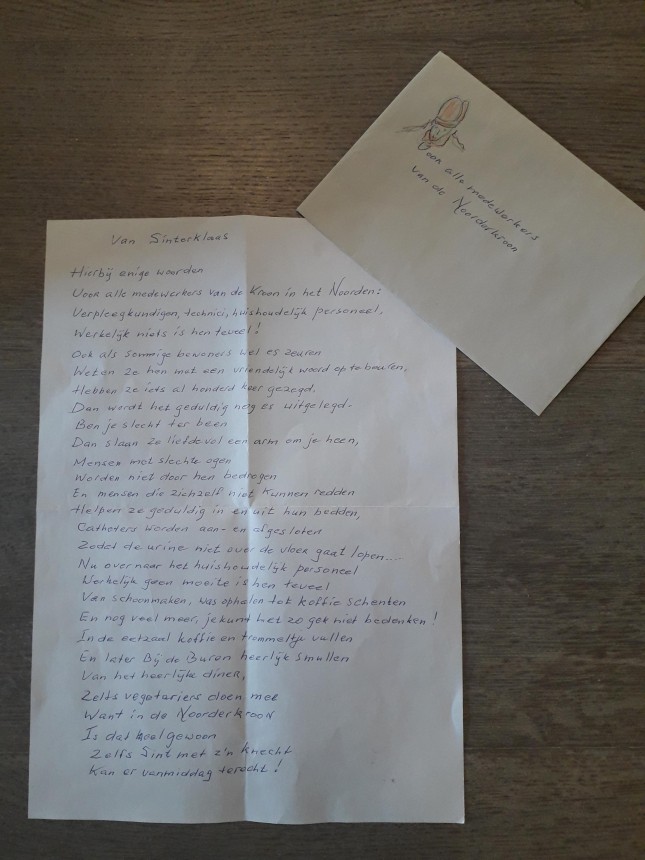 Voor alle medewerkers
van de Noorderkroon
Van Sinterklaas
Hierbij enige woorden
Voor alle medewerkers van de Kroon in het Noorden:
Verpleegkundigen, technici, huishoudelijk personeel,
Werkelijk niets is hen teveel!
Ook als sommige bewoners wel es zeuren
Weten ze hen met een vriendelijk woord op te beuren,
Hebben ze iets al honderd keer gezegd.
Dan wordt het geduldig nog es uitgelegd.
Ben je slecht ter been
Dan slaan ze liefdevol een arm om je heen,
Mensen met slechte ogen
Worden niet door hen bedrogen
En mensen die zichzelf niet kunnen redden
Helpen ze geduldig in en uit hun bedden,
Catheters worden aan- en afgesloten
Zodat de urine niet over de vloer gaat lopen....
Nu over naar het huishoudelijk personeel
Werkelijk geen moeite is hen teveel
Van schoonmaken, was ophalen tot koffie schenken
En nog veel meer, je kunt het zo gek niet bedenken!
In de eetzaal koffie en trommeltje vullen
En later Bij de Buren heerlijk smullen
Van het heerlijke diner,
Zelfs vegetariers doen mee
Want in de Noorderkroon
Is dat heel gewoon
Zelfs Sint met z'n knecht
Kan er vanmiddag terecht!